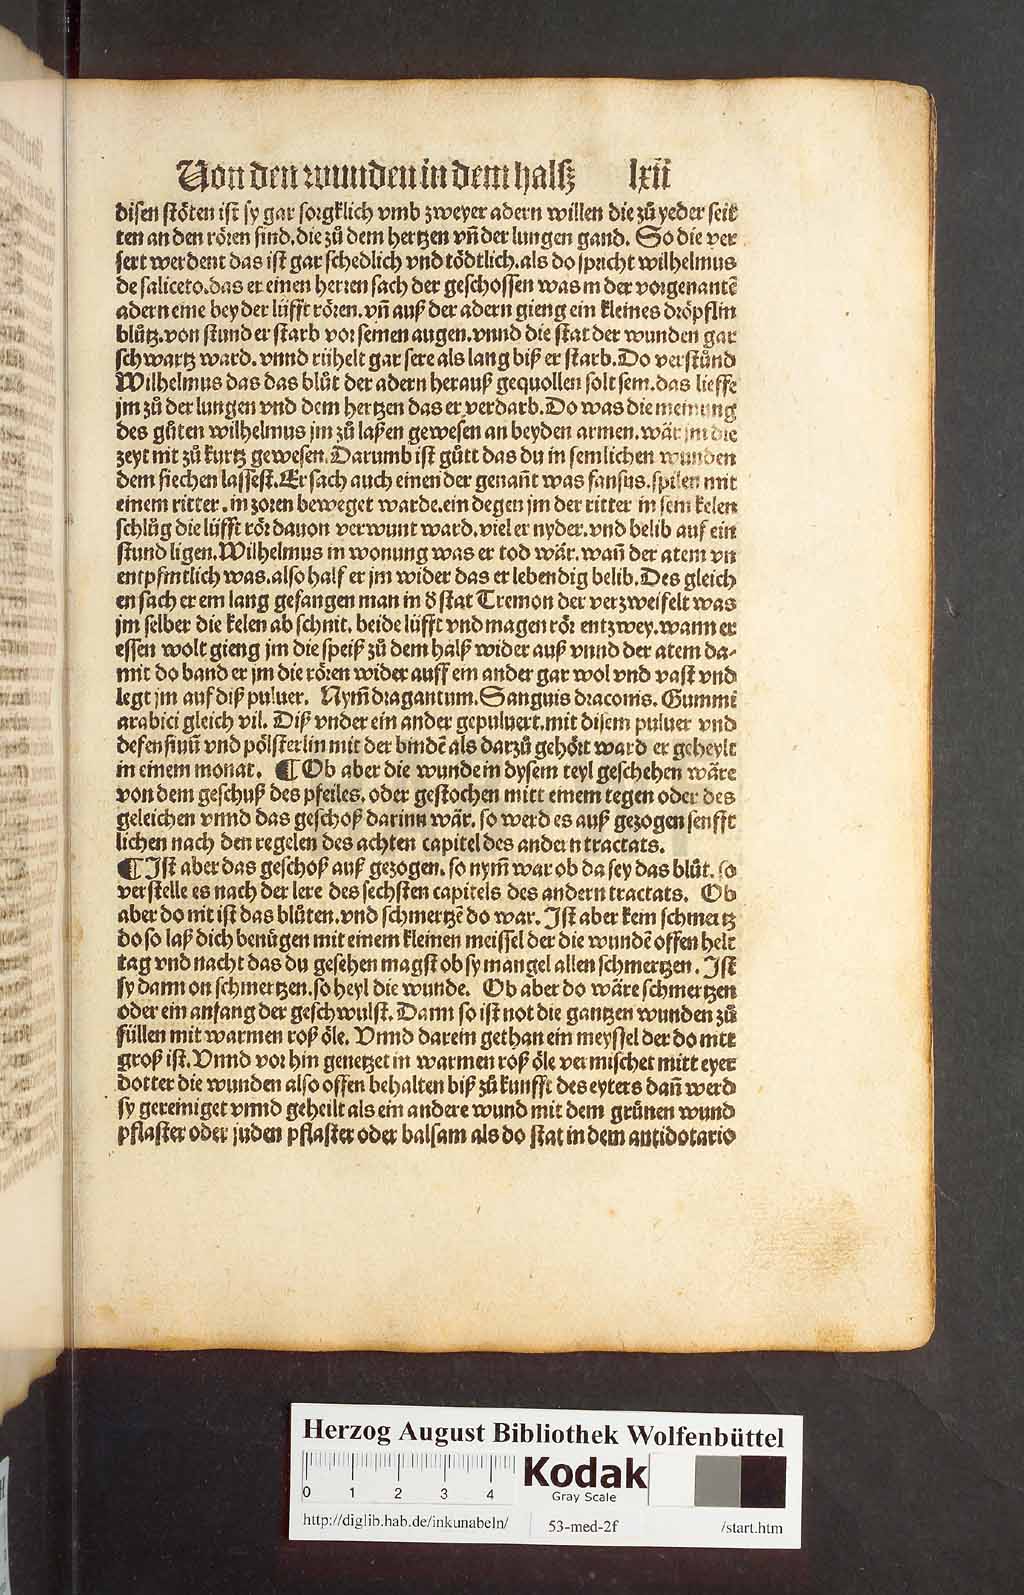 Von den wunden in dem halsz lxii
disen stöten ist sy gar sorgklich vmb zweyer adern willen die zů yeder seit
ten an den rören sind. die zů dem hertzen vñ der lungen gand. So die ver
sert werdent das ist gar schedlich vnd tödtlich. als do spricht wilhelmus
de saliceto. das er einen herren sach der geschossen was in der vorgenantē
adern eine bey der lüfft rören. vñ auß der adern gieng ein kleines dröpflin
blůtz. von stund er starb vor seinen augen. vnnd die stat der wunden gar
schwartz ward. vnnd rühelt gar sere als lang biß er starb. Do verstůnd
Wilhelmus das das blůt der adern herauß gequollen solt sein. das lieffe
jm zů der lungen vnd dem hertzen das er verdarb. Do was die meinung
des gůten wilhelmus jm zů laßen gewesen an beyden armen. wär jm die
zeyt nit zů kurtz gewesen. Darumb ist gůtt das du in semlichen wunden
dem siechen lassest. Er sach auch einen der genañt was sansus. spilen mit
einem ritter. in zoren beweget warde. ein degen jm der ritter in sein kelen
schlůg die lüfft rör dauon verwunt ward. viel er nyder. vnd belib auf ein
stund ligen. Wilhelmus in wonung was er tod wär. wañ der atem vn
entpfintlich was. also half er jm wider das er lebendig belib. Des gleich
en sach er em lang gefangen man in d̕ stat Tremon der verzweifelt was
jm selber die kelen ab schnit. beide lüfft vnd magen rör entzwey. wann er
essen wolt gieng jm die speiß zů dem halß wider auß vnnd der atem da-
mit do band er jm die rören wider auff ein ander gar wol vnd vast vnd
legt jm auf diß puluer. Nym̄ dragantum. Sanguis draconis. Gummi
arabici gleich vil. Diß vnder ein ander gepuluert. mit disem puluer vnd
defensiuū vnd pölsterlin mit der bindē als darzů gehört ward er geheylt
in einem monat. ¶ Ob aber die wunde in dysem teyl geschehen wäre
von dem geschuß des pfeiles. oder gestochen mitt einem tegen oder des
geleichen vnnd das geschoß darinn wär. so werd es auß gezogen senfft
lichen nach den regelen des achten capitel des andern tractats.
¶ Ist aber das geschoß auß gezogen. so nym̄ war ob da sey das blůt. so
verstelle es nach der lere des sechsten capitels des andern tractats. Ob
aber do nit ist das blůten. vnd schmertzē do war. Ist aber kein schmertz
do so laß dich benůgen mit einem kleinen meissel der die wundē offen helt
tag vnd nacht das du gesehen magst ob sy mangel allen schmertzen. Ist
sy dann on schmertzen. so heyl die wunde. Ob aber do wäre schmertzen
oder ein anfang der geschwulst. Dann so ist not die gantzen wunden zů
füllen mit warmen roß öle. Vnnd darein gethan ein meyssel der do nitt
groß ist. Vnnd vor hin genetzet in warmen roß öle vermischet mitt eyer
dotter die wunden also offen behalten biß zů kunfft des eyters dañ werd
sy gereiniget vnnd geheilt als ein andere wund mit dem grůnen wund
pflaster oder juden pflaster oder balsam als do stat in dem antidotario
Herzog August Bibliothek Wolfenbüttel
0 1 2 3 4
Kodak
Gray Scale
http://diglib.hab.de/inkunabeln/ 53-med-2f /start.htm